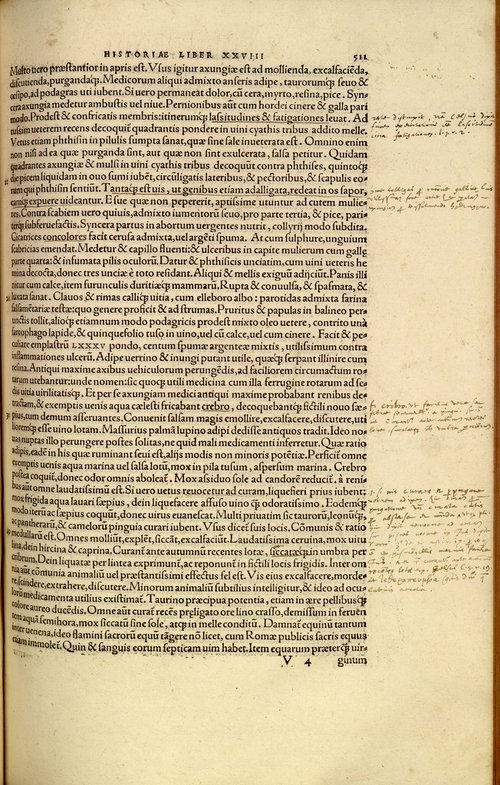 HISTORIAE LIBER XXVIII 511
Multo uero præstantior in apris est. Vsus igitur axungiæ est ad mollienda, excalfaciēda,
discutienda, purgandaq́;. Medicorum aliqui admixto anseris adipe, taurorumq́; seuo &
œsipo, ad podagras uti iubent. Si uero permaneat dolor, cū cera, myrto, resina, pice. Syn
cera axungia medetur ambustis uel niue. Pernionibus aūt cum hordei cinere & galla pari
modo. Prodest & confricatis membris: itinerumq́; lassitudines & fatigationes leuat. Ad
tussim ueterem recens decoquit̃ quadrantis pondere in uini cyathis tribus addito melle.
Vetus etiam phthisin in pilulis sumpta sanat, quæ sine sale inueterata est. Omnino enim
non nisi ad ea quæ purganda sint, aut quæ non sint exulcerata, salsa petitur. Quidam
quadrantes axungiæ & mulsi in uini cyathis tribus decoquūt contra phthises, quintoq́;
die picem liquidam in ouo sumi iubēt, circūligatis lateribus, & pectoribus, & scapulis eo
rum qui phthisin sentiūt. Tantaq́; est uis, ut genibus etiam adalligata, redeat in os sapor,
eamq́; expuere uideantur. E sue quæ non pepererit, aptissime utuntur ad cutem mulie-
res. Contra scabiem uero quiuis, admixto iumentorū seuo, pro parte tertia, & pice, pari-
terq́; subferuefactis. Syncera partus in abortum uergentes nutrit, collyrij modo subdita.
Cicatrices concolores facit cerusa admixta, uel argēti spuma. At cum sulphure, unguium
scabricias emendat. Medetur & capillo fluenti: & ulceribus in capite mulierum cum gallæ
parte quarta: & infumata pilis oculorū. Datur & phthisicis unciatim, cum uini ueteris he
mina decocta, donec tres unciæ è toto residant. Aliqui & mellis exiguū adijciūt. Panis illi
nitur cum calce, item furunculis duritiæq́; mammarū. Rupta & conuulsa, & spasmata, &
luxata sanat. Clauos & rimas calliq́; uitia, cum elleboro albo: parotidas admixta farina
salsamētariæ testæ: quo genere proficit & ad strumas. Pruritus & papulas in balineo per-
unctis tollit, alioq́; etiamnum modo podagricis prodest mixto oleo uetere, contrito unà
sarcophago lapide, & quinquefolio tuso in uino, uel cū calce, uel cum cinere. Facit & pe-
culiare emplastrū LXXXV pondo, centum spumæ argenteæ mixtis, utilissimum contra
inflammationes ulcerū. Adipe uerrino & inungi putant utile, quæq́; serpant illinire cum
resina. Antiqui maxime axibus uehiculorum perungēdis, ad faciliorem circumactum ro-
tarum utebantur: unde nomen: sic quoq́; utili medicina cum illa ferrugine rotarum ad se-
dis uitia uirilitatisq́;. Et per se axungiam medici antiqui maxime probabant renibus de-
tractam, & exemptis uenis aqua cælesti fricabant crebro, decoquebantq́; fictili nouo sæ-
pius, tum demum asseruantes. Conuenit salsam magis emollire, excalfacere, discutere, uti
lioremq́; esse uino lotam. Massurius palmā lupino adipi dedisse antiquos tradit. Ideo no-
uas nuptas illo perungere postes solitas, ne quid mali medicamenti inferretur. Quæ ratio
adipis, eadē in his quæ ruminant seui est, alijs modis non minoris potētiæ. Perficit̃ omne
exemptis uenis aqua marina uel salsa lotū, mox in pila tusum, aspersum marina. Crebro
postea coquit̃, donec odor omnis aboleat̃. Mox assiduo sole ad candorē reducit̃. à reni-
bus aūt omne laudatissimū est. Si uero uetus reuocetur ad curam, liquefieri prius iubent:
mox frigida aqua lauari sæpius, dein liquefacere affuso uino q̃ odoratissimo. Eodemq́;
modo iterū ac sæpius coquūt, donec uirus euanescat. Multi priuatim sic taurorū, leonūq́;,
ac pantherarū, & camelorū pinguia curari iubent. Vsus dicet̃ suis locis. Cōmunis & ratio
medullarū est. Omnes molliūt, explēt, siccāt, excalfaciūt. Laudatissima ceruina, mox uitu
lina, dein hircina & caprina. Curant̃ ante autumnū recentes lotæ, siccatæq́; in umbra per
cribrum. Dein liquatæ per lintea exprimunt̃, ac reponunt̃ in fictili locis frigidis. Inter om
nia aūt cōmunia animaliū uel præstantissimi effectus fel est. Vis eius excalfacere, morde-
re, scindere, extrahere, discutere. Minorum animaliū subtilius intelligitur, & ideo ad ocu-
lorū medicamenta utilius existimat̃. Taurino præcipua potentia, etiam in ære pellibusq́;
colore aureo ducēdis. Omne aūt curat̃ recēs præligato ore lino crasso, demissum in feruen
tem aquā semihora, mox siccatū sine sole, atq́; in melle conditū. Damnat̃ equinū tantum
inter uenena, ideo flamini sacrorū equū tāgere nō licet, cum Romæ publicis sacris equus
etiam immolet̃. Quin & sanguis eorum septicam uim habet. Item equarum præterq̃ uir-
V 4 ginum